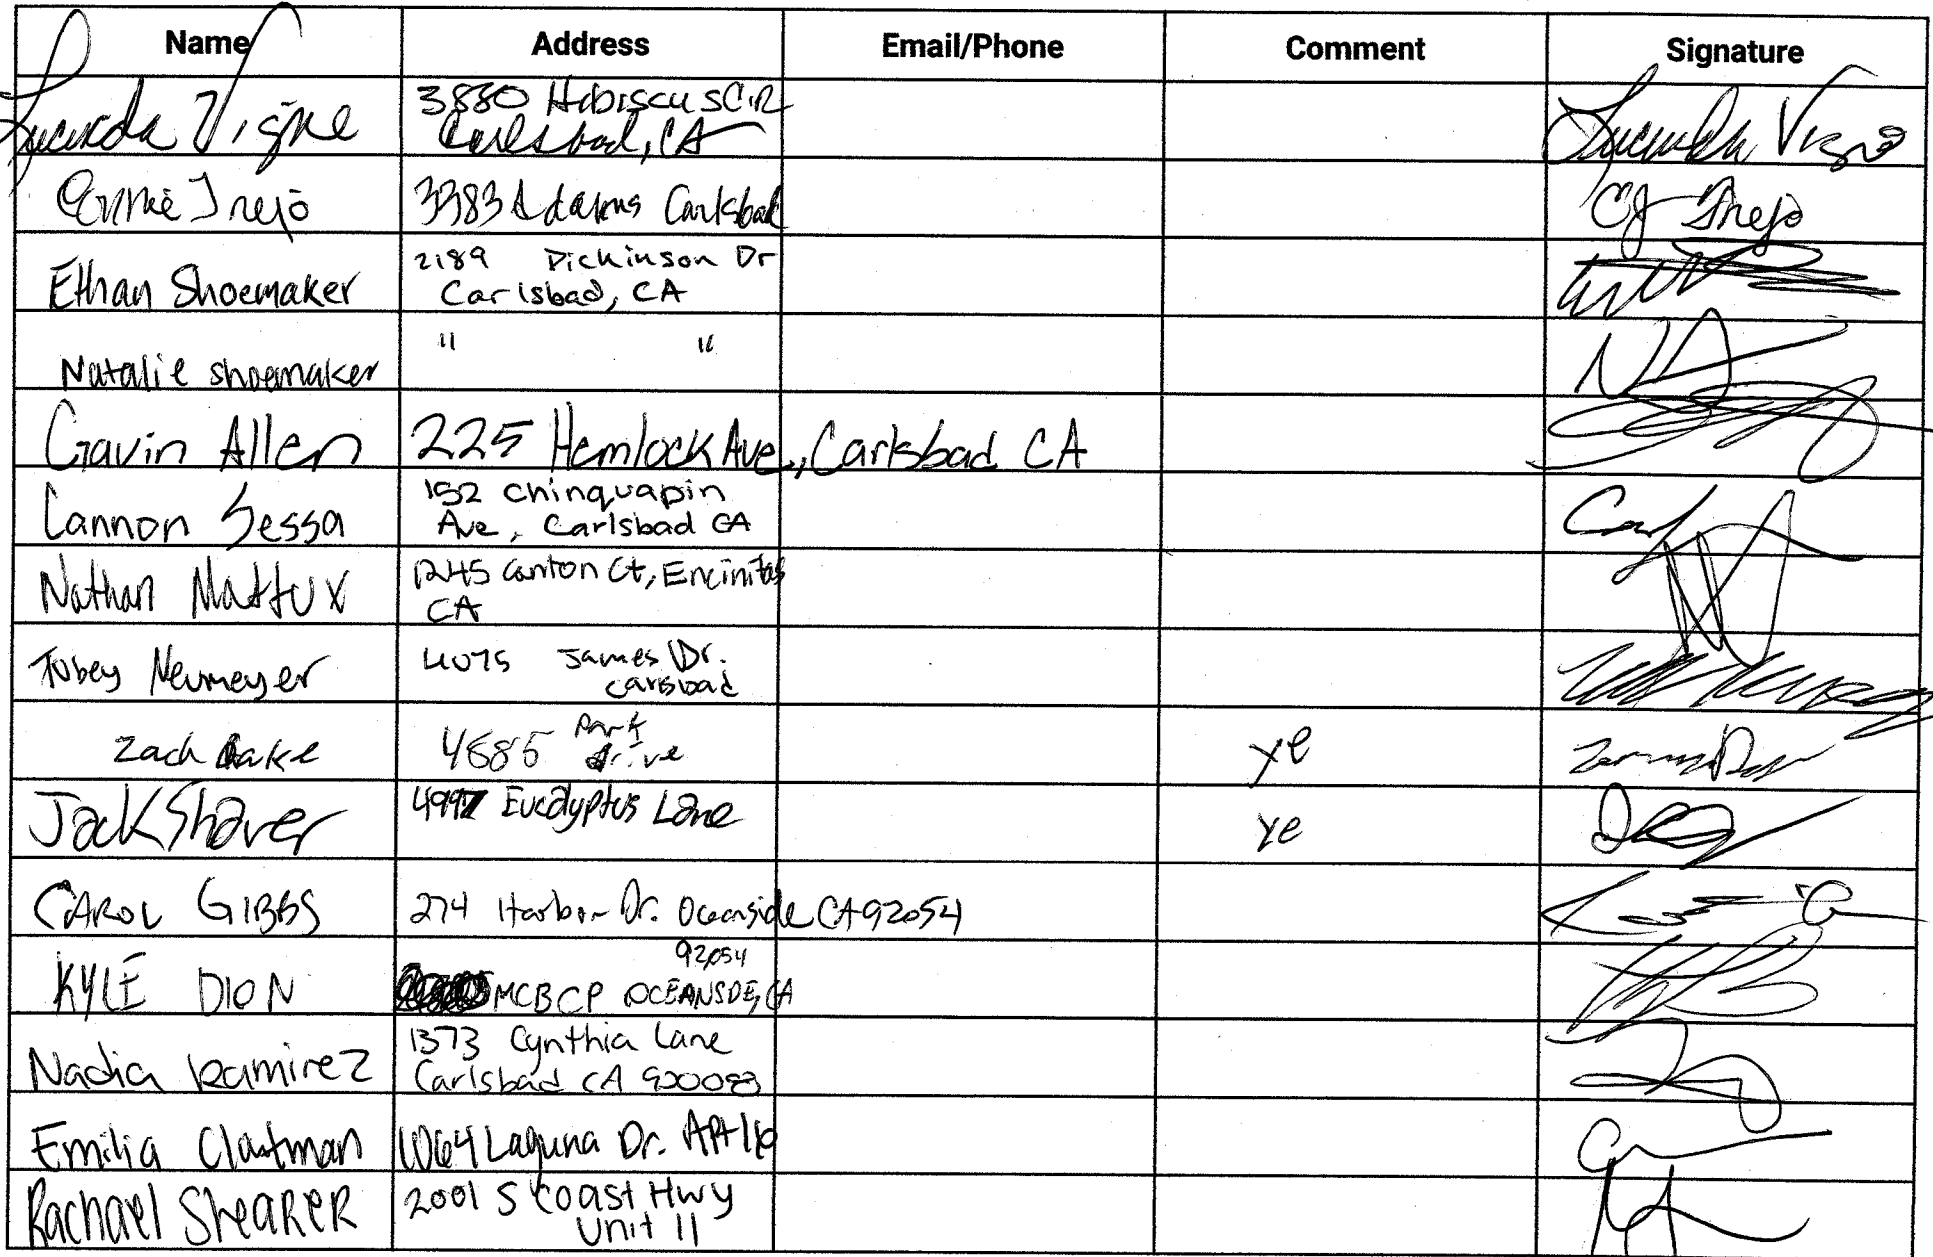 Name Address Email/Phone Comment Signature
Lucinda Vigne 3880 Hibiscus CiR
Carlsbad, CA Lucinda Vigne
Ernie Trejo 3383 Adams Carlsbad CJ Trejo
Ethan Shoemaker 2189 Dickinson Dr
Carlsbad, CA
Natalie shoemaker " "
Gavin Allen 225 Hemlock Ave., Carlsbad CA
Cannon Sessa 152 Chinquapin
Ave, Carlsbad CA
Nathan Mattux 1245 Canton Ct, Encinitas
CA
Tobey Neumeyer 4075 James Dr.
carlsbad
Zach 4685 Park
drive ye
Jack Shaver 4997 Eucalyptus Lane ye
CAROL GIBBS 274 Harbor Dr. Oceanside CA 92054
92054
KYLE DION MCBCP OCEANSDE, CA
Nadia Ramirez 1373 Cynthia Lane
Carlsbad CA
Emilia Clastman 1064 Laguna Dr. APt
Rachael Shearer 2001 S Coast Hwy
Unit 11